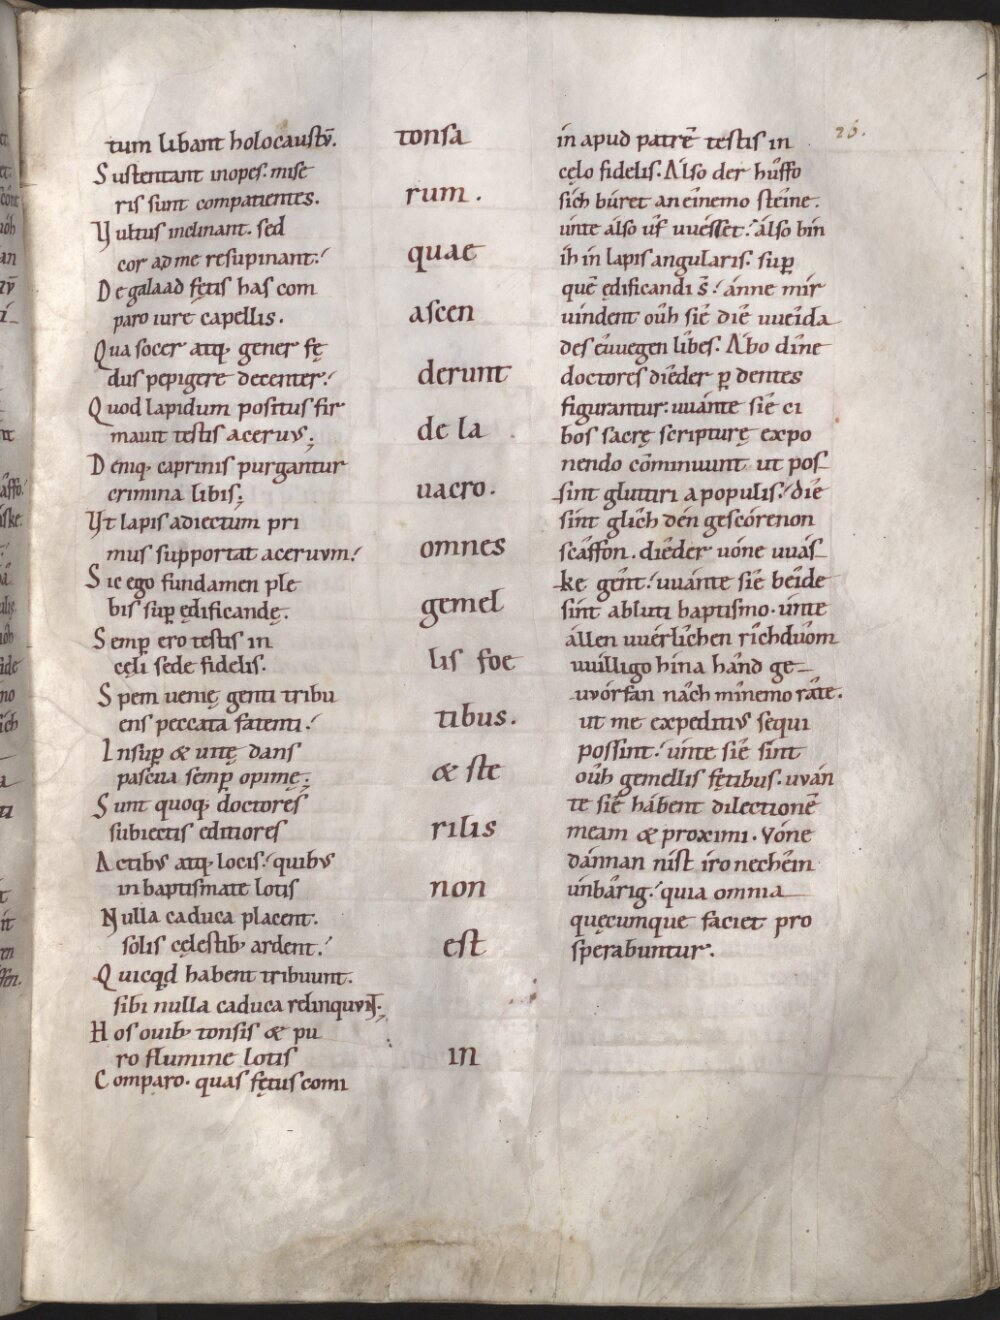 26.
tum libant holocaustū.
Sustentant inopes. mise
ris sunt compatientes.
Vultus inclinant. sed
cor ad me resupinant.
De galaad fętis has com
paro iure capellis.
Qua socer atq; gener fę
dus pepigere decenter.
Quod lapidum positus fir
mauit testis acervvs;
Deniq; caprinis purgantur
crimina libis;
Vt lapis adiectum pri
mus supportat aceruvm.
Sic ego fundamen ple
bis sup ędificandę.
Semp ero testis in
cęli sede fidelis.
Spem venię genti tribu
ens peccata fatenti.
Insup & uitę dans
pascua semp opimę;
Sunt quoq; doctores
subiectis editiores
Actibvs atq; locis. quibvs
in baptismate lotis
Nulla caduca placent.
solis cęlestib; ardent.
Quicqd habent tribuunt.
sibi nulla caduca relinquvnt.
Hos ouib; tonsis & pu
ro flumine lotis
Comparo. quas fętus comi
tonsa
rum.
quae
ascen
derunt
de la
uacro.
omnes
gemel
lis foe
tibus.
& ste
rilis
non
est
in
in apud patrē testis in
cęlo fidelis. Álso der hûffo
sih búret an eînemo steîne.
únte álso ûf uuésset. álso bín
íh in lapis angularis. sup
quē ędificandi s̄. ánne mír
uíndent oûh siê diê uueîda
des êuuegen lîbes. Ábo dîne
doctores diêder p dentes
figurantur. uuánte siê ci
bos sacrę scripturę expo
nendo cōminuunt. ut pos
sint glutiri a populis. diê
sint glîch dén gescórenon
scâffon. diêder uóne uuás
ke gênt. uuánte siê beîde
sint abluti baptismo. únte
állen uuérlîchen rîchduôm
uuílligo hina hánd ge
uvórfan nâch mînemo râte.
ut me expeditvs sequi
possint. únte siê sint
oûh gemellis fętibus. uván
te siê hábent dilectionē
meam & proximi. Vóne
dánnan níst iro necheîn
únbârig. quia omnia
quęcumque faciet pro
sperabuntur.